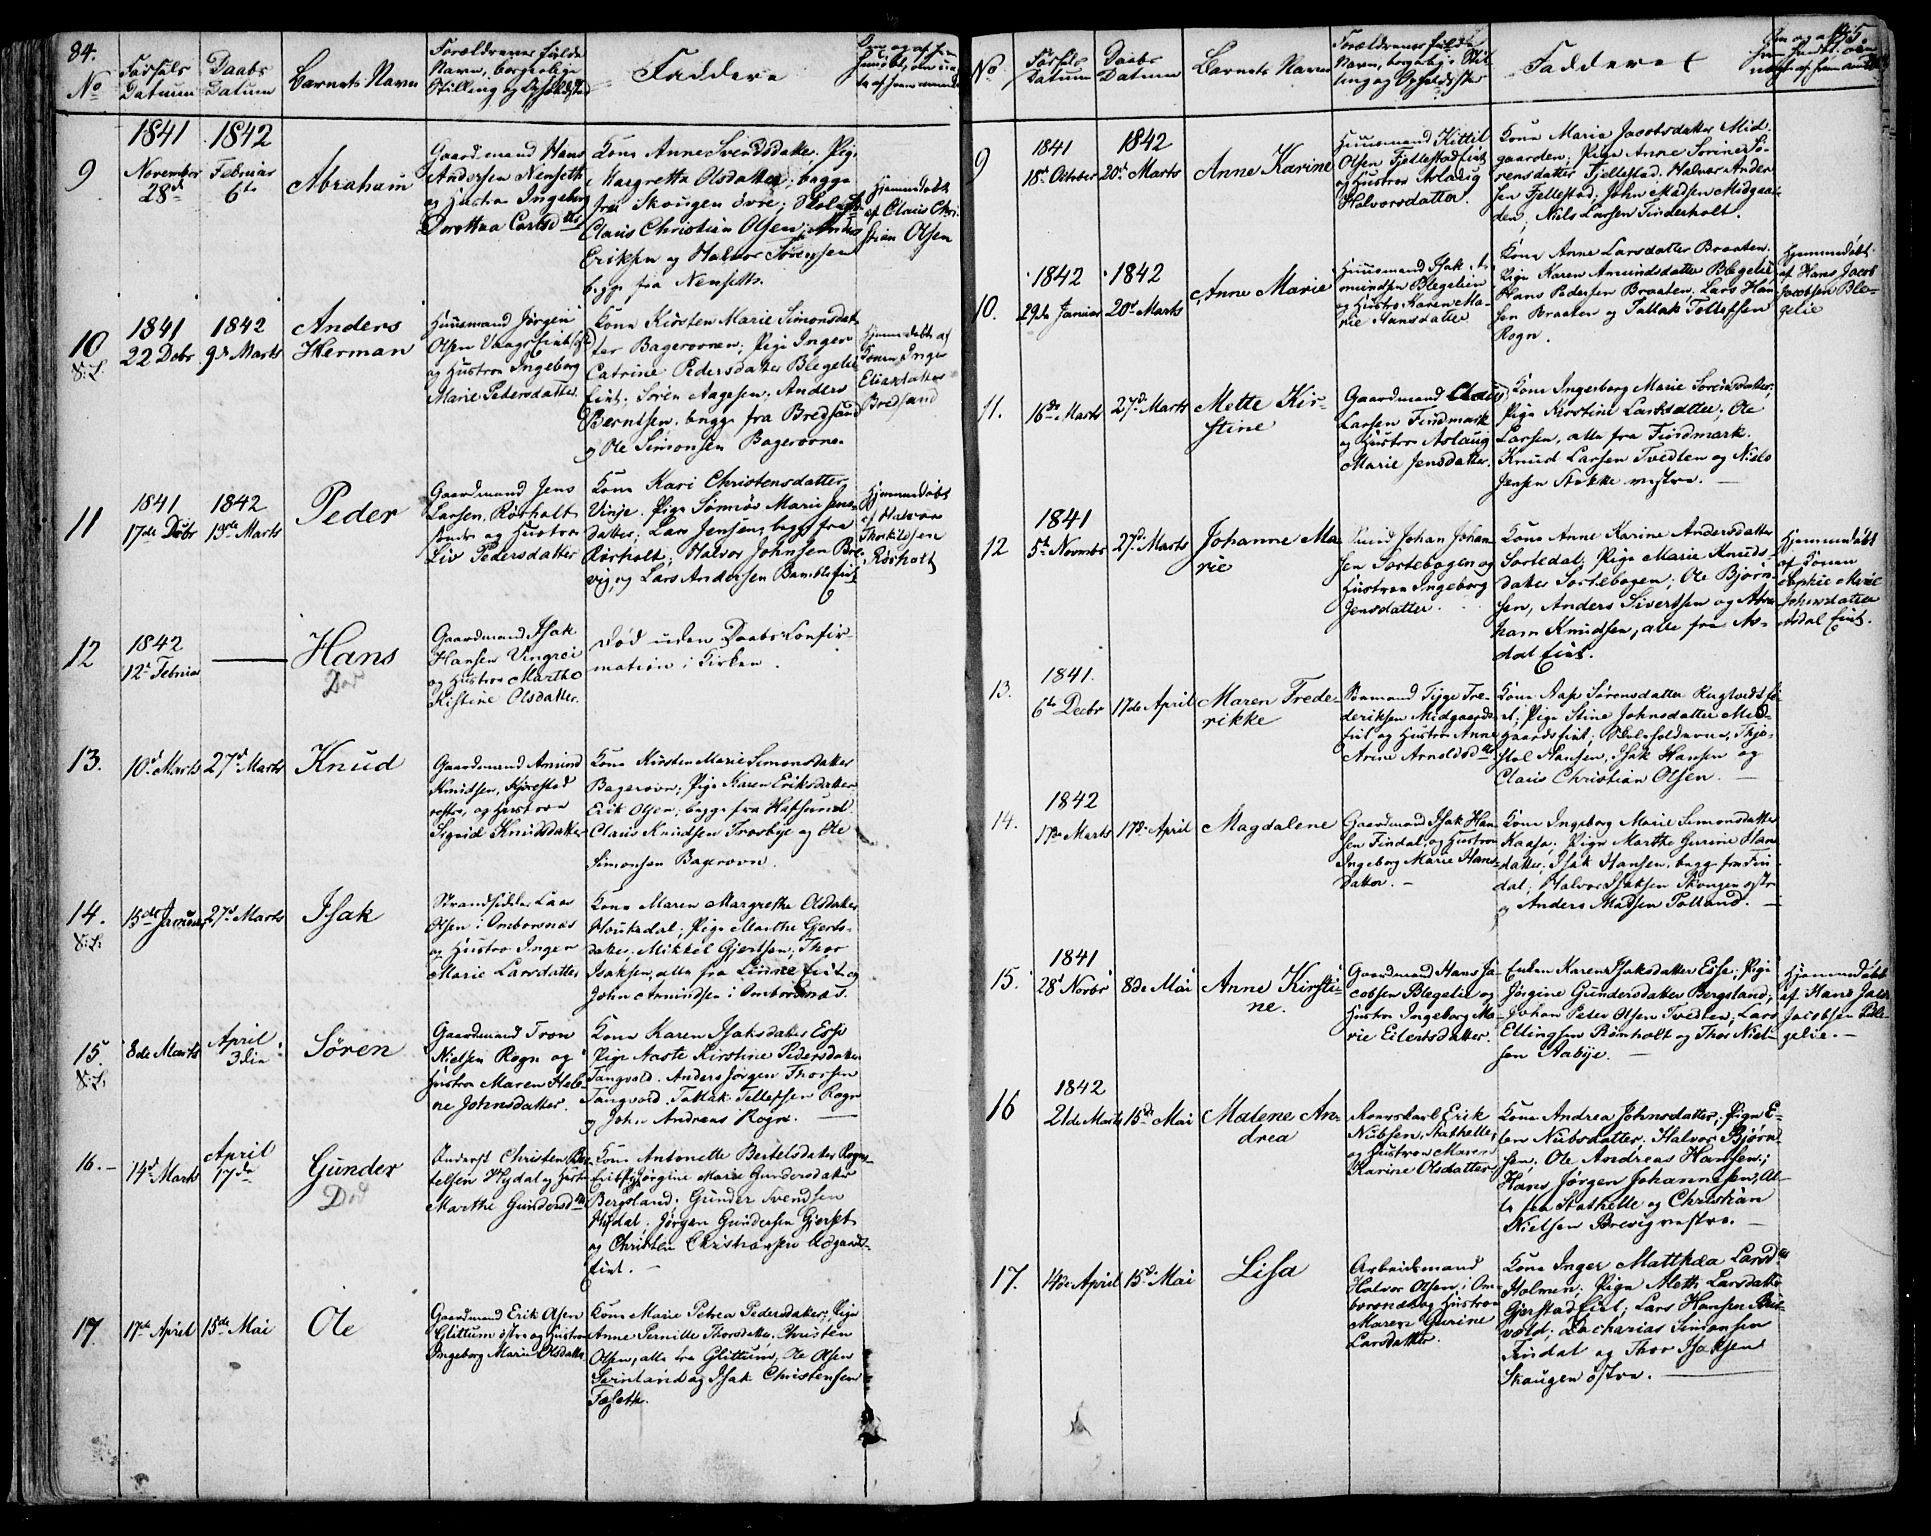 84.
No
Fødsels Datum
Daabs Datum
Barnets Navn
Forældrenes fulde
Navn, borgerlige
Stilling og Opholdsted
Faddere
9
1841
November
28de
1842
Februar
6te
Abraham
Gaardmand Hans
Andersen Nenseth
og Hustru Ingeborg
Dorothea Carlsdtr
Kone Anne Svendsdatter. Pige
Margrethe Olsdatter; begge
fra Skougen øvre;
Claus Christian Olsen;
Eriksen og Halvor Sørensen
begge fra Nenseth.
Hjemmedøbt
af Claus Chri
stian Olsen
10
1841
22 Debr
1842
9de Marts
Anders
Herman
Huusmand Jørgen
Olsen
og Hustru Ingeborg
Marie Pedersdatter
Kone Kirsten Marie Simonsdat
ter Bagerovnen; Pige Inger
Catrine Pedersdatter Blegelie
eiet; Søren Aagesen; Anders
Berntsen, begge fra Bredsand
og Ole Simonsen Bagerovne
Hjemmedøbt af
Konen Inger
Eliasdatter
Bredsand
11
1841
17de Debr
1842
13de Marts
Peder
Gaardmand Jens
Larsen, Rørholt
søndre og Hustru
Liv Pedersdatter
Kone Kari Christensdatter
Vinje. Pige Marie Jens
datter; Lars Jensen, begge fra
Rørholt; Halvor Johnsen Bre
vig, og Lars Andersen Bambleeiet
Hjemmedøbt
af Halvor
Thorkildsen
Rørholt
12
1842
12te Februar
Hans
Død
Gaardmand Isak
Hansen
og Hustru Marthe
Kistine Olsdatter.
Død uden Daabs Confir-
mation i Kirken.
13.
10de Marts
27de Marts
Knud
Gaardmand Amund
Knudsen, Kjørestad
vestre, og Hustru
Sigrid Knudsdatter
Kone Kirsten Marie Simonsdatter
Bagerovn; Pige Karen Eriksdatter
Erik Olsen; begge fra
Claus Knudsen Trosbye og Ole
Simonsen Bagerovn.
14.
15de Januar
27de Marts
Isak
Strandsidder Lars
Olsen i Omborsnæs
og Hustru Inger
Marie Larsdatter
Kone Maren Margrethe Olsdatter
Pige Marthe Gjerts-
datter. Mikkel Gjertsen; Thor
Isaksen, alle fra Linneeiet og
John Amundsen i Omborsnæs.
15
8de Marts
April
3die
Søren
Gaardmand Tron
Nielsen Rogn og
Hustru Maren Hele-
ne Johnsdatter.
Kone Karen Isaksdatter Esse
Pige Aaste Kirstine Pedersdatter
Tangvald. Anders Jørgen Thorsen
Tangvald. Tallak Tellefsen Rogn
og John Andreas Rogn.
16.
14de Marts
April
17de
Gunder
Død
Inderst Christen Ber
telsen Hydal og Hustru
Marthe Gundersdtr
Kone Antonette Bertelsdatter Rogns
eiet; Pige Jørgine Marie Gundersdatter
Bergsland; Gunder Svendsen
Hydal; Jørgen Gundersen Gjerset
og Christen Christensen Aasgaards-
eiet.
17.
17de April
15de Mai
Ole
Gaardmand Erik Olsen
Glittum østre og Hustru
Ingeborg Marie Olsdatter
Kone Marie Petrea Pedersdatter; Pige
Anne Pernille Thorsdatter, Christen
Olsen, alle fra Glittum, Ole Olsen
og Isak Christensen
Fæseth.
85.
No
Fødsels
Datum
Daabs
Datum
Barnets Navn
Forældrenes fulde
Navn, borgerlige Stil-
ling og Opholdsted
Faddere
9
1841
18de October
1842
20de Marts
Anne Karine
Huusmand Kittil
Olsen Fjellestadeiet
og Hustru Aslaug
Halvorsdatter.
Kone Maria Jacobsdatter Mid-
gaarden; Pige Anne Sørine Sø-
rensdatter Fjellestad; Halvor Ander-
sen Fjellestad; John Madsen Midgaar-
den; Niels Larsen Tinderholt.
10.
1842
29de Januar
1842
20de Marts
Anne Marie
Huusmand Isak
mundsen Blegelien
og Hustru Karen Ma-
rie Hansdatter
Kone Anne Larsdatter Braaten.
Pige Karen Amundsdatter Blegelie
Hans Pedersen Braaten. Lars Han
sen Braaten og Tallak Tellefsen
Rogn.
Hjemmedøbt
af Hans Jacob
Jacobsen Ble-
gelie
11.
16de Marts
27de Marts
Mette Kir-
stine
Gaardmand Claus
Larsen Findmark
og Hustru Aslaug
Marie Jensdatter.
Kone Ingerborg Marie Sørensdatter,
Pige Kirstine Larsdatter; Ole
Larsen, alle fra Findmark.
Knud Larsen Tvedten og Niels
Jensen Stokke vestre.
12
1841
5te Novembr
27de Marts
Johanne Ma-
rie
Johan Johan
sen Sortebogen og
Hustru Ingeborg
Jensdatter.
Kone Anne Karine Andersdatter
Sortedal; Pige Marie Knuds-
datter Sortebogen; Ole Bjørn-
sen, Anders Sivertsen og Abra-
ham Knudsen, alle fra As-
dal Eiet.
Hjemmedøbt
af Konen
Sophie Marie
Johnsdatter
Asdal Eiet.
13.
1841.
6te Decbr
17de April
Maren Frede-
rikke
Tyge Fre-
deriksen Midgaards-
eiet og Hustru Anne
Arine Arnoldsdtr
Kone Aase Sørensdatter Rugtvedtei-
et; Pige Stine Johnsdatter Mid-
gaardseiet; Skoleholderne, Thjo-
stol Hansen, Isak Hansen og
Claus Christian Olsen.
14.
1842
17de Marts
17de April
Magdalene
Gaardmand Isak Han-
sen Findal, og Hustru
Ingeborg Marie Hans-
datter.
Kone Ingeborg Marie Simonsdatter
Kaasa; Pige Marthe Gurine Hans
datter. Isak Hansen, begge fra Fin-
dal; Halvor Isaksen Skougen østre
og Anders Madsen Tolland.
15.
1841
28de Novbr
8de Mai
Anne Kirsti-
ne.
Gaardmand Hans Ja-
cobsen Blegelie og
Hustru Ingeborg Ma-
rie Eilertsdatter.
Enken Karen Isaksdatter Esse; Pige
Jørgine Gundersdatter Bergsland;
Johan Peter Olsen Tvedten; Lars
Ellingsen Rønholt og Thor Niel-
sen Aabye.
Hjemmedøbt
af Hans Jacob
Jacobsen Ble-
gelie.
16
1842
21de Marts
15de Mai
Malene An-
drea
Erik
Nubsen, Stathelle,
og Hustru Maren
Karine Olsdatter
Kone Andrea Johnsdatter; Pige E-
len Nubsdatter. Halvor Bjørn
sen; Ole Andreas Hansen;
Hans Jørgen Johannesen, Al-
le fra Stathelle og Christian
Nielsen Brevig vestre.
17.
14de April
15de Mai
Lisa
Arbeidsmand
Halvor Olsen, i Om-
borsnæs og Hustru
Maren Gurine
Larsdatter.
Kone Inger Matthea Larsdtr
Holmen; Pige Aleth Larsdatter
Gjerstadeiet; Lars Hansen
Zacharias Simonsen
Findal og Thor Isaksen
Skaugen østre.